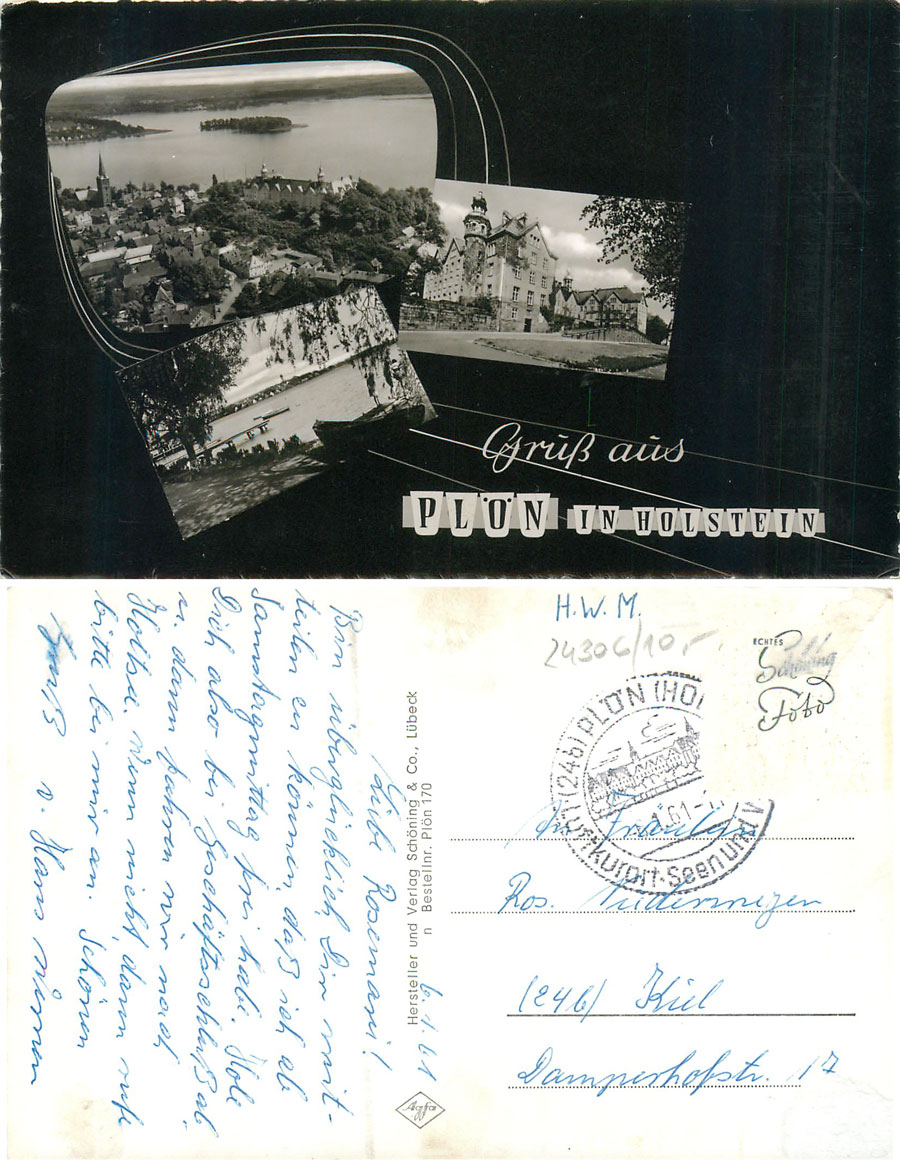 Gruß aus
PLÖN IN HOLSTEIN
H.W.M.
24306/10,-
ECHTES
Schöning
Foto
(24b) PLÖN (HO
.1.61-1
Luftkurort-Seen und W
6.1.61
Liebe Rosemarie!
Bin überglücklich, Dir mit-
teilen zu können, daß ich ab
Samstagmittag frei habe. Hole
Dich also bei Geschäftsschluß ab.
u. dann fahren wir nach
Holtsee. Wenn nicht, dann rufe
bitte bei mir an. Schönen
Gruß v. Hans
Hersteller und Verlag Schöning & Co., Lübeck
n Bestellnr. Plön 170
Agfa
An Fräulein
Ros.
(24b) Kiel
Damperhofstr. 17